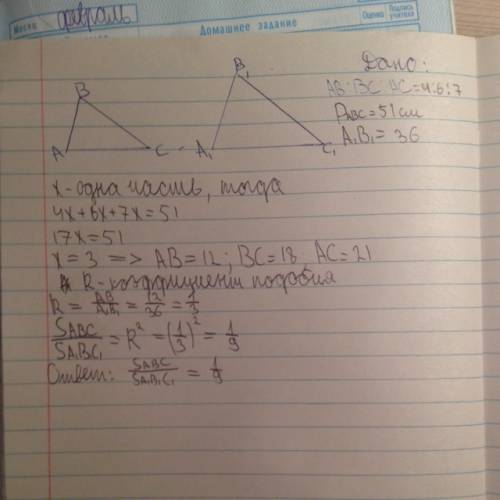 февраль
Домашнее задание
Оценка
Подпись учителя
B
A
C
B₁
A₁
C₁
Дано:
AB:BC:AC=4:6:7
P_ABC=51см
A₁B₁=36
x-одна часть, тогда
4x+6x+7x=51
17x=51
x=3 => AB=12; BC=18 AC=21
R-коэффициент подобия
R = AB/A₁B₁ = 12/36 = 1/3
S_ABC/S_A₁B₁C₁ = R² = (1/3)² = 1/9
Ответ: S_ABC/S_A₁B₁C₁ = 1/9